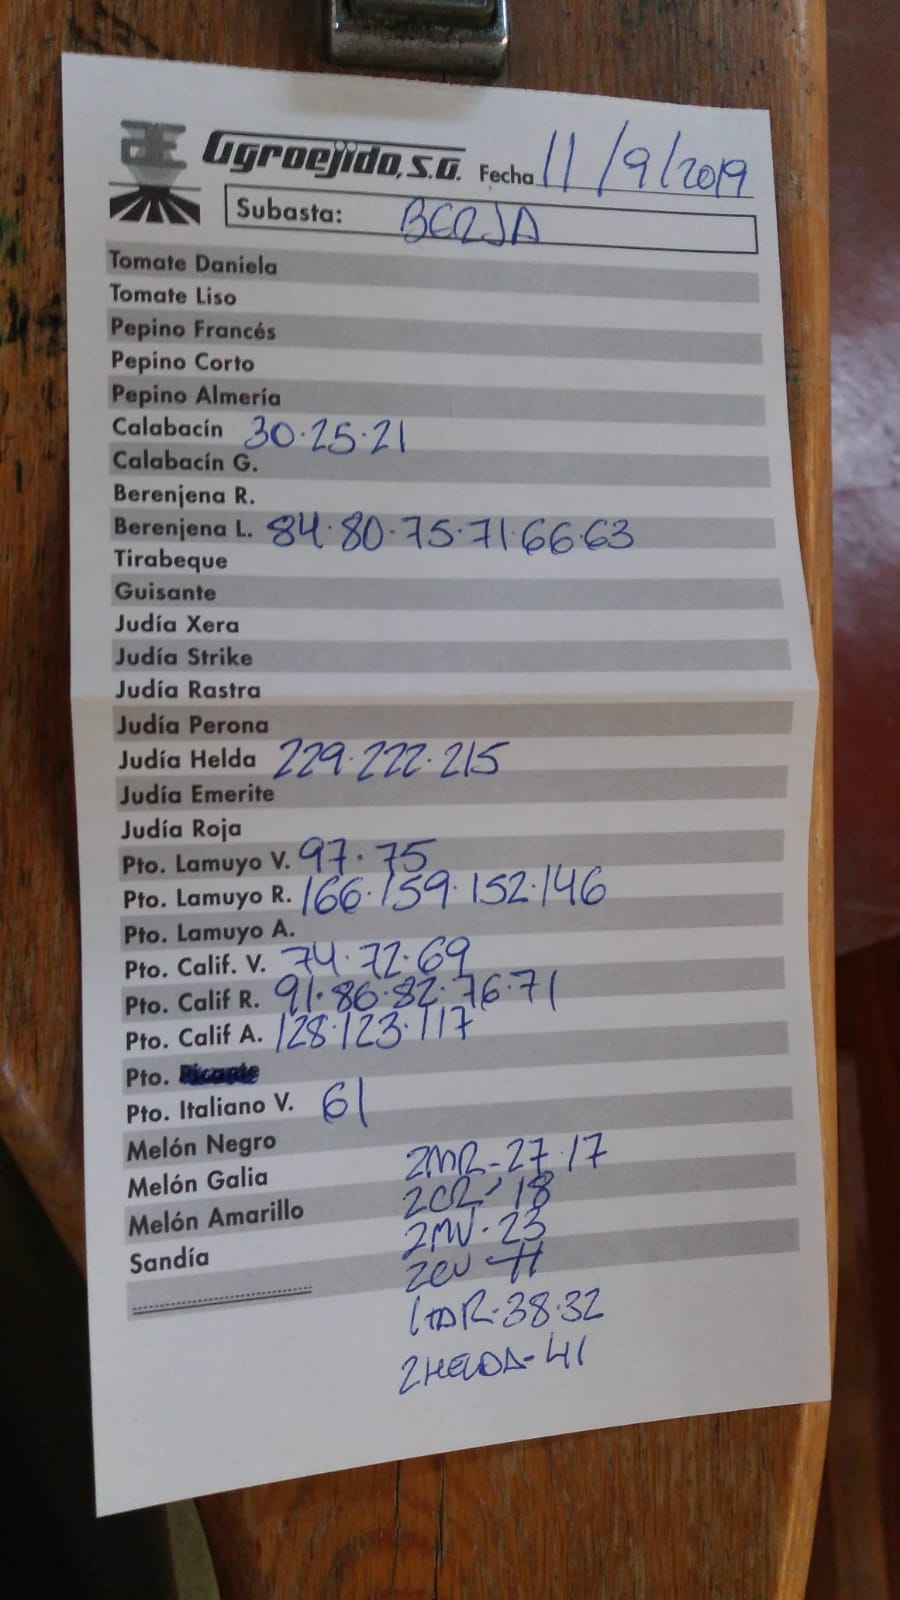 Agroejido, S.A. Fecha 11/9/2019
Subasta: BERJA
Tomate Daniela
Tomate Liso
Pepino Francés
Pepino Corto
Pepino Almería
Calabacín 30·25·21
Calabacín G.
Berenjena R.
Berenjena L. 84·80·75·71·66·63
Tirabeque
Guisante
Judía Xera
Judía Strike
Judía Rastra
Judía Perona
Judía Helda 229·222·215
Judía Emerite
Judía Roja
Pto. Lamuyo V. 97·75
Pto. Lamuyo R. 166·159·152·146
Pto. Lamuyo A.
Pto. Calif. V. 74·72·69
Pto. Calif R. 91·86·82·76·71
Pto. Calif A. 128·123·117
Pto. Picante
Pto. Italiano V. 61
Melón Negro
Melón Galia 2MR-27·17
Melón Amarillo 2CR-18
2MV·23
Sandía
2CV-11
ITAR·38·32
2HELDA-41